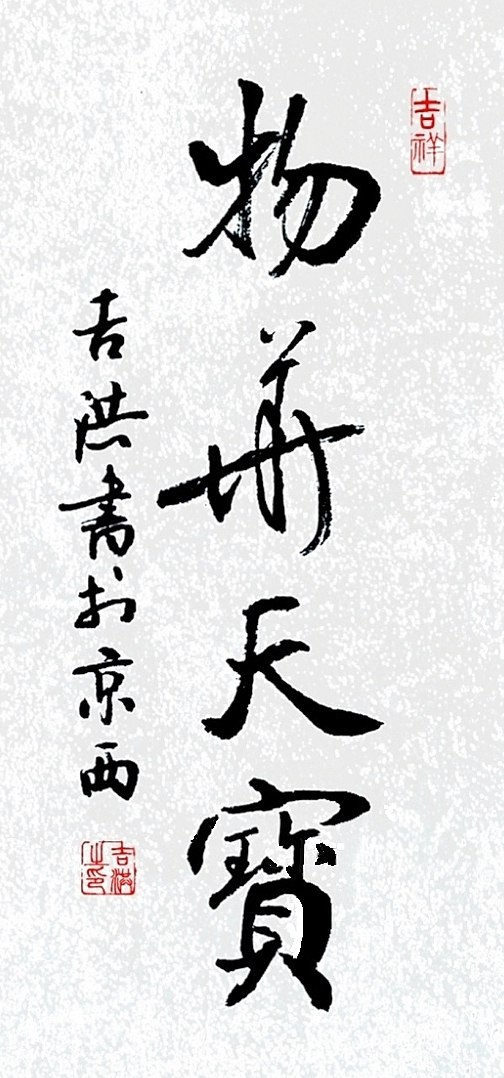 吉祥
物華天寶
吉洪書於京西
吉洪之印